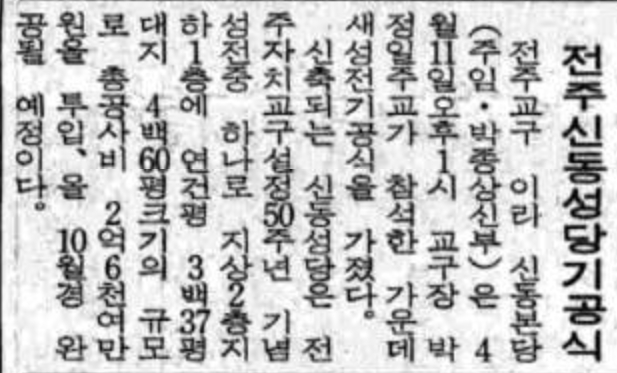 전주신동성당기공식
전주교구 이리 신동본당
(주임·박종상신부)은 4
월11일오후1시 교구장 박
정일주교가 참석한 가운데
새성전기공식을 가졌다.
신축되는 신동성당은 전
주자치교구설정50주년 기념
성전중 하나로 지상2층지
하1층에 연건평 3백37평
대지 4백60평크기의 규모
로 총공사비 2억6천여만
원을 투입、올 10월경 완
공될 예정이다.